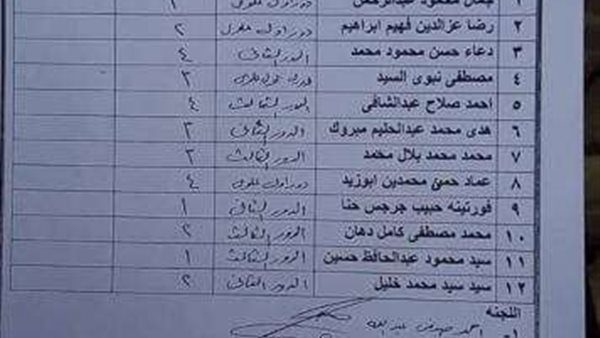 ١ جمال محمود عبدالرحمن دور اول علوى
٢ رضا عزالدين فهيم ابراهيم دور اول علوى ٢
٣ دعاء حسن محمود محمد الدور الثانى ٤
٤ مصطفى نبوى السيد دور اول علوى ٣
٥ احمد صلاح عبدالشافى الدور الثالث ٤
٦ هدى محمد عبدالحليم مبروك الدور الثانى ٣
٧ محمد محمد بلال محمد الدور الثالث ٢
٨ عماد محمدين ابوزيد دور اول علوى ٤
٩ فورتينه حبيب جرجس حنا الدور الثانى ١
١٠ محمد مصطفى كامل دهان الدور الثالث ٢
١١ سيد محمود عبدالحافظ حسين الدور الثالث ١
١٢ سيد سيد محمد خليل الدور الثانى ٢
اللجنه
١- احمد